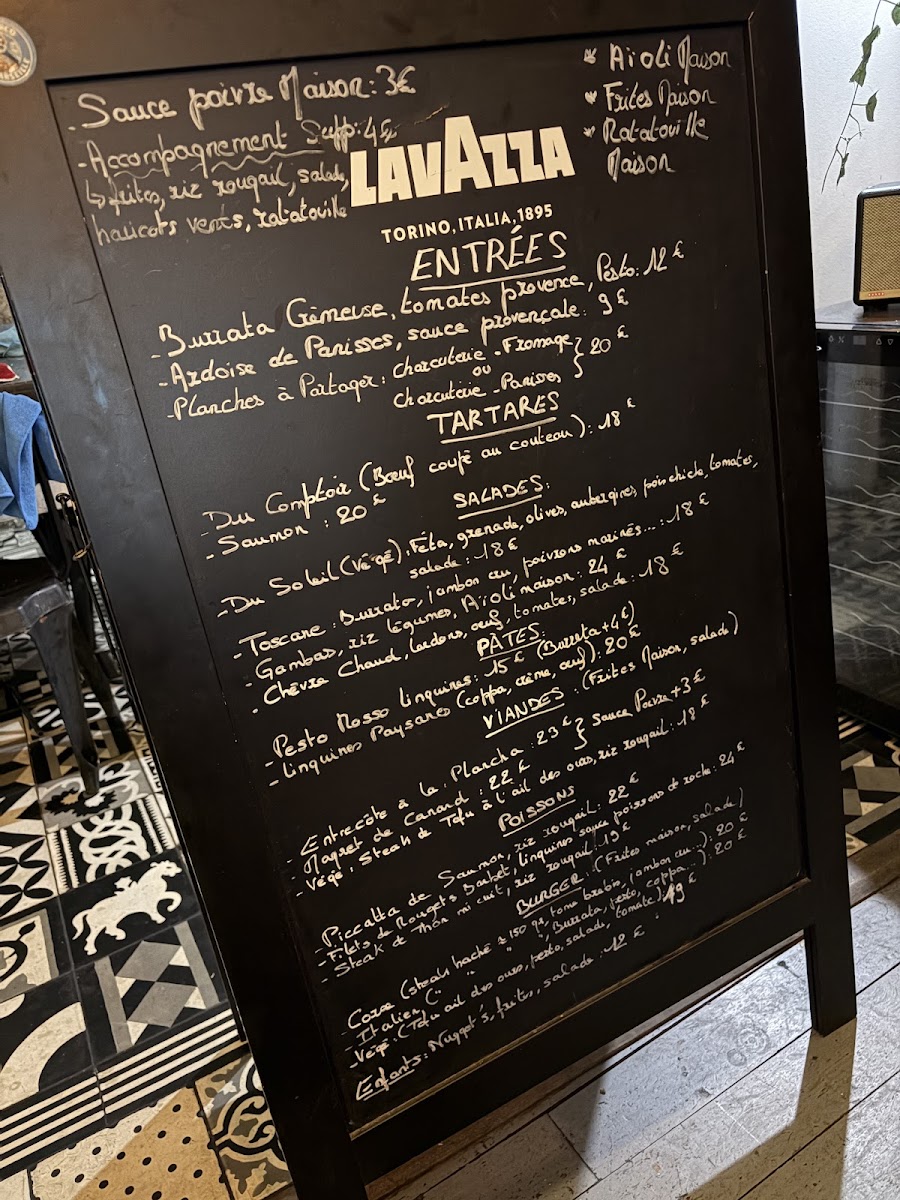 Sauce poivre Maison : 3€
- Accompagnement Supp : 4€
↳ frites, riz rougail, salade,
haricots verts, ratatouille
* Aïoli Maison
* Frites Maison
* Ratatouille
Maison
LAVAZZA
TORINO, ITALIA, 1895
ENTRÉES
- Burrata Crèmeuse, tomates provence, Pesto : 12 €
- Ardoise de Panisses, sauce provençale : 9 €
- Planches à Partager : charcuterie - Fromage } 20 €
ou
charcuterie - Panisses
TARTARES
- Du Comptoir (Bœuf coupé au couteau) : 18 €
- Saumon : 20 €
SALADES :
- Du Soleil (végé) : Féta, grenade, olives, aubergines, pois chiche, tomates,
salade : 18 €
- Toscane : Burrata, jambon cru, poivrons marinés... : 18 €
- Gambas, riz légumes, Aïoli maison : 24 €
- Chèvre Chaud, lardons, œuf, tomates, salade : 18 €
PÂTES :
- Pesto Rosso linguines : 15 € (Burrata + 4 €)
- linguines Paysanne (coppa, crème, œuf) : 20 €
VIANDES : (Frites Maison, salade)
- Entrecôte à la Plancha : 23 € } Sauce Poivre + 3 €
- Magret de Canard : 22 €
- Végé : Steak de Tofu à l'ail des ours, riz rougail : 18 €
POISSONS
- Piccatta de Saumon, riz rougail : 22 €
- Filets de Rougets Barbet, linguines sauce poissons de roche : 24 €
- Steak de Thon mi cuit, riz rougail : 19 €
BURGER : (Frites maison, salade)
- Corse (steak haché ± 150 gr, tome brebis, jambon cru...) : 20 €
- Italien (" " " ", Burrata, pesto, coppa...) : 20 €
- Végé : (Tofu ail des ours, pesto, salade, tomate) : 19 €
Enfants : Nugget's, frites, salade : 12 €